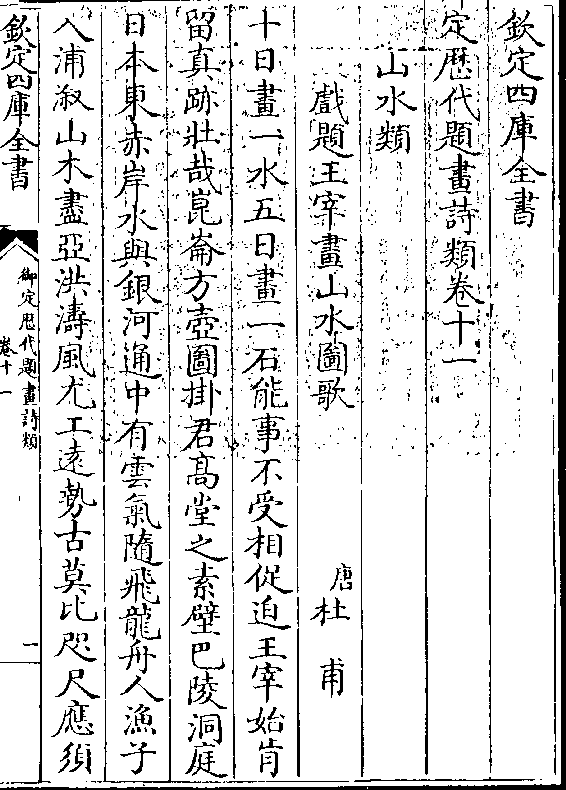 欽定四庫全書
定歴代題畫詩類卷十一
山水類
戲題王宰畫山水圖歌
唐杜甫
十日畫一水五日畫一石能事不受相促迫王宰始肯
留真跡壯哉崑崙方壺圖掛君髙堂之素壁巴陵洞庭
日本東赤岸水與銀河通中有雲氣隨飛龍舟人漁子
入浦溆山木盡亞洪濤風尤工遠勢古莫比咫尺應須
欽定四庫全書
御定歴代題畫詩類
卷十一
一